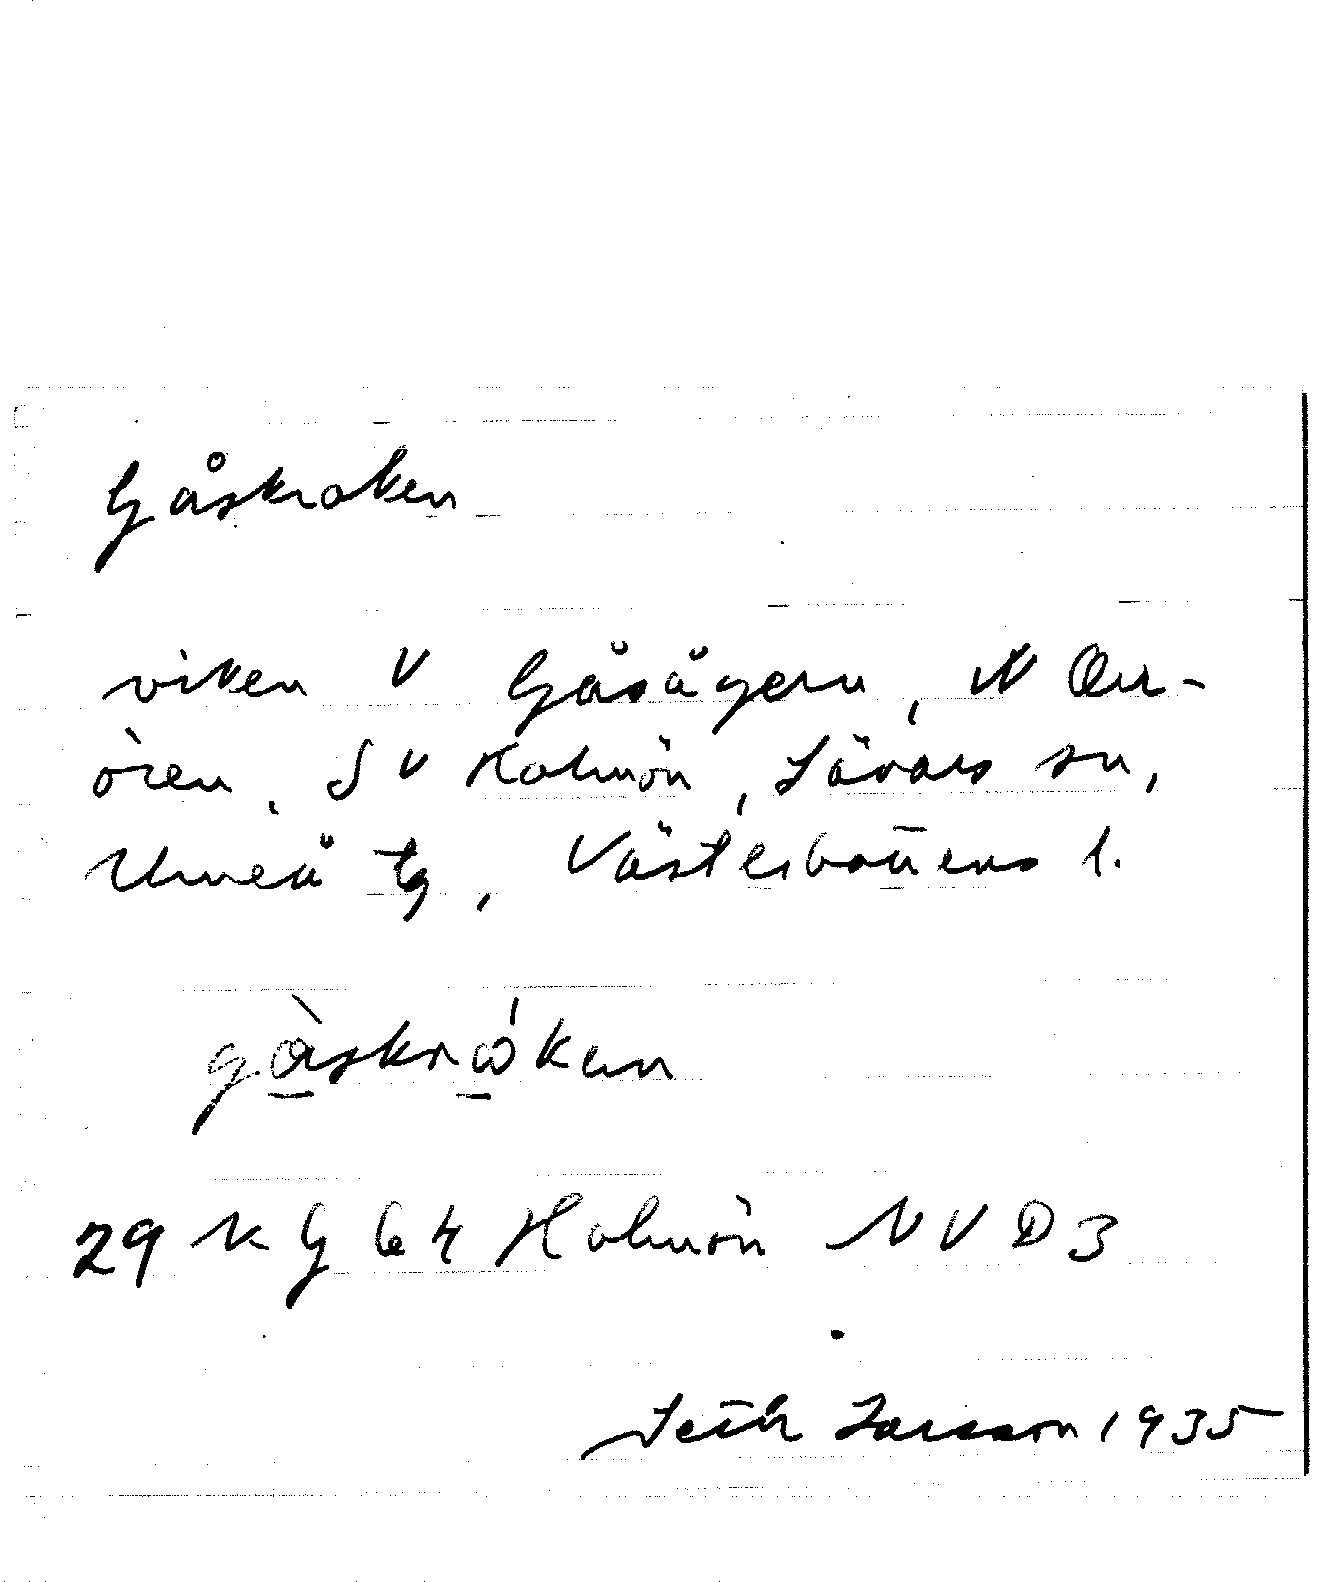 Gåskroken
viken V Gåsågern, N Orr-
ören, SV Holmön, Sävars sn,
Umeå tg, Västerbottens l.
gàskróken
29 K G 64 Holmön NV D 3
Seth Larsson 1935